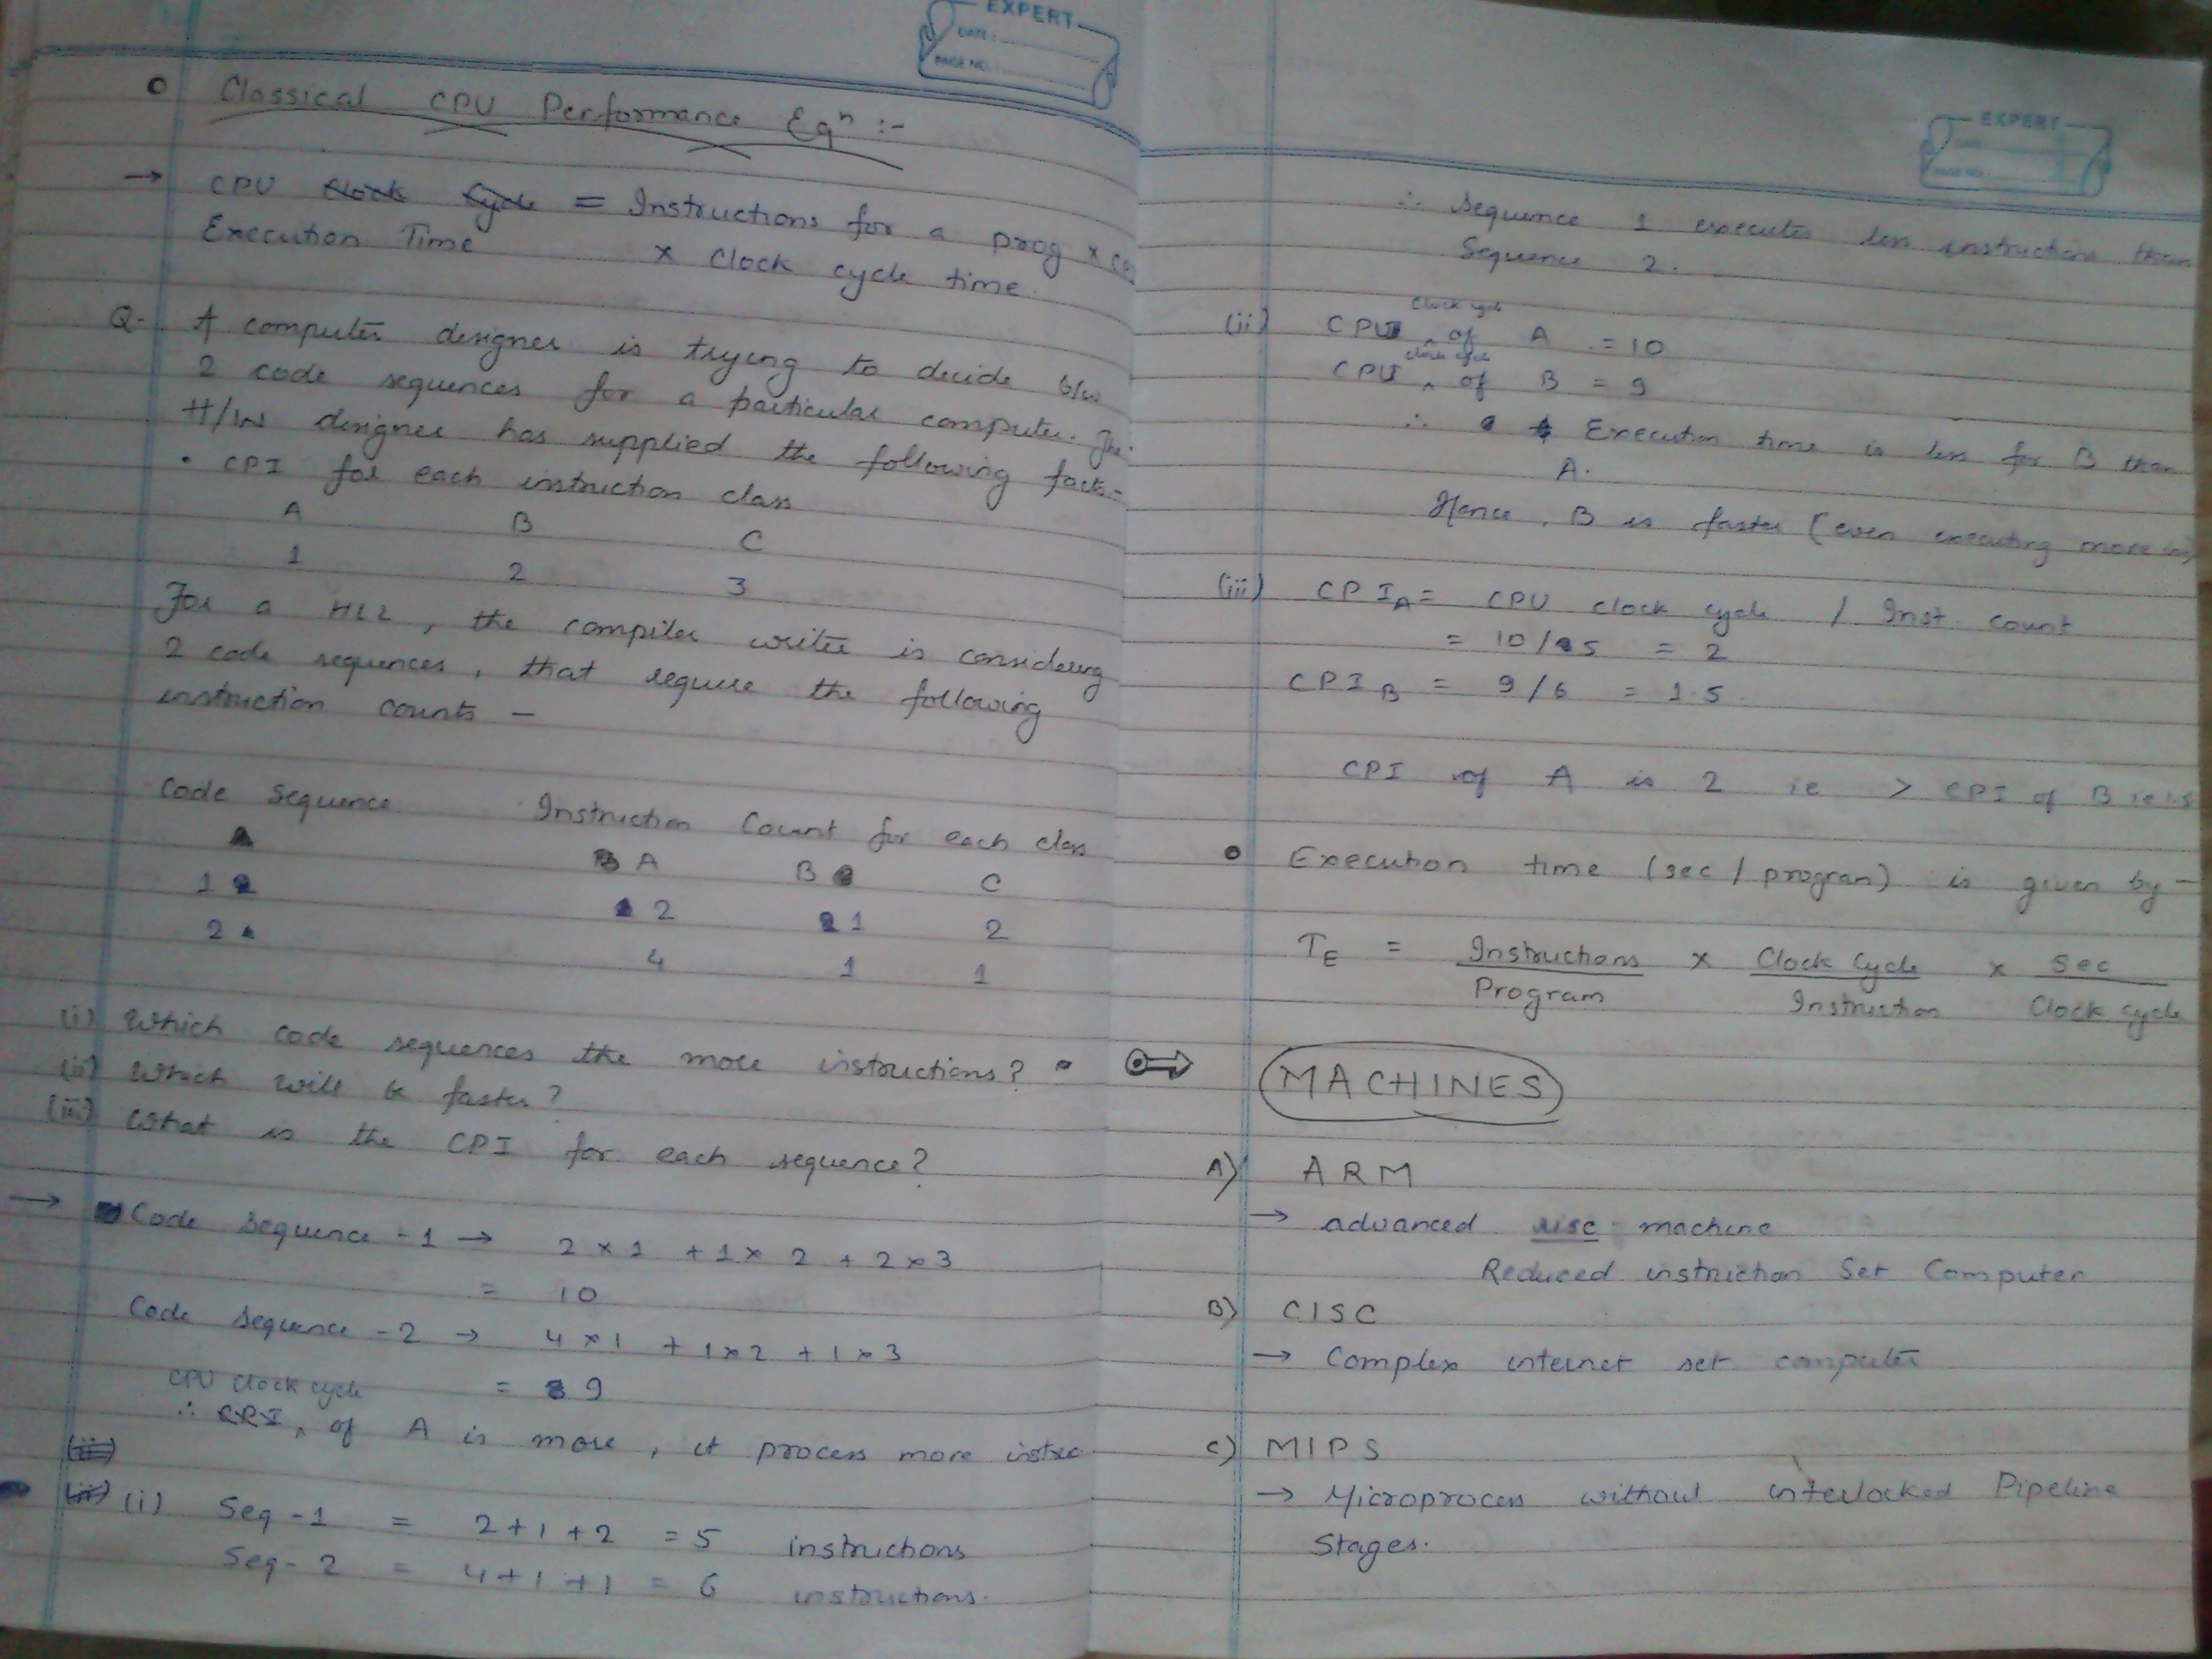 EXPERT
DATE:
PAGE NO.:
Classical CPU Performance Eqⁿ :-
→ CPU Clock Cycle = Instructions for a prog x
Execution Time x Clock cycle time.
Q- A computer designer is trying to decide b/w
2 code sequences for a particular computer. The
H/W designer has supplied the following facts-
• CPI for each instruction class
A B C
1 2 3
For a HLL, the compiler writer is considering
2 code sequences, that require the following
instruction counts -
Code Sequence Instruction Count for each class
A B C
1 2 1 2
2 4 1 1
(i) Which code sequences the more instructions?
(ii) Which will be faster?
(iii) What is the CPI for each sequence?
→ Code Sequence - 1 → 2 x 1 + 1 x 2 + 2 x 3
= 10
Code Sequence - 2 → 4 x 1 + 1 x 2 + 1 x 3
= 9
CPU clock cycle
∴ CPI of A is more, it process more instruc
(ii)
(ii) (i) Seq - 1 = 2 + 1 + 2 = 5 instructions
Seq - 2 = 4 + 1 + 1 = 6 instructions.
EXPERT
DATE:
PAGE NO.:
∴ Sequence 1 executes less instructions than
Sequence 2.
(ii) CPU Clock cycle of A = 10
CPU clock cycle of B = 9
∴ Execution time is less for B than
A.
Hence, B is faster (even executing more
(iii) CPI A = CPU clock cycle / Inst. count
= 10/5 = 2
CPI B = 9/6 = 1.5
CPI of A is 2 ie > CPI of B ie 1.5
Execution time (sec / program) is given by -
T E = Instructions x Clock Cycle x Sec
Program Instruction Clock cycle
MACHINES
A) ARM
→ advanced risc machine
Reduced instruction Set Computer
B) CISC
→ Complex internet set computer
C) MIPS
→ Microprocess without interlocked Pipeline
Stages.